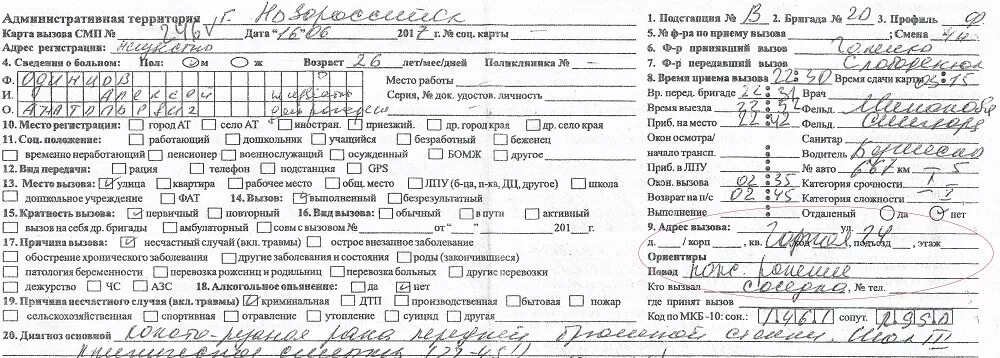 Административная территория г. Новороссийск
Карта вызова СМП № 246 Дата "16" 06 2017 г. № соц. карты
Адрес регистрации: неизвестно
4. Сведения о больном: Пол: м ж Возраст 26 лет/мес/дней Поликлиника №
Ф. ОДИНЦОВ Место работы
И. АЛЕКСЕЙ Серия, № док. удостов. личность
О. АНАТОЛЬЕВИЧ
10. Место регистрации: город АТ село АТ иностран. приезжий. др. город края др. село края
11. Соц. положение: работающий дошкольник учащийся безработный беженец
временно неработающий пенсионер военнослужащий осужденный БОМЖ другое
12. Вид передачи: рация телефон подстанция GPS
13. Место вызова: улица квартира рабочее место общ. место ЛПУ (б-ца, п-ка, ДЦ, другое) школа
дошкольное учреждение ФАТ 14. Вызов: выполненный безрезультатный
15. Кратность вызова: первичный повторный 16. Вид вызова: обычный в пути активный
вызов на себя др. бригады амбулаторный совм с вызовом № от " " 201 г.
17. Причина вызова: несчастный случай (вкл. травмы) острое внезапное заболевание
обострение хронического заболевания другие заболевания и состояния роды (закончившиеся)
патология беременности перевозка рожениц и родильниц перевозка больных другие перевозки
дежурство ЧС АЗС 18. Алкогольное опьянение: да нет
19. Причина несчастного случая (вкл. травмы) криминальная ДТП производственная бытовая пожар
сельскохозяйственная спортивная отравление утопление суицид другая
20. Диагноз основной колото-резаная рана передней брюшной стенки. Шок III
1. Подстанция № В 2. Бригада № 20 3. Профиль Ф
5. № ф-ра по приему вызова ; Смена
6. Ф-р принявший вызов
7. Ф-р передавший вызов
8. Время приема вызова 22:30 Время сдачи карты 03:15
Вр. перед. бригаде 22:31 Врач
Время выезда 22:32 Фельд.
Приб. на место 22:42 Фельд.
Окон осмотра/ Санитар
начало трансп. Водитель
Приб. в ЛПУ № авто 667 км 5
Окон. вызова 02:35 Категория срочности I
Возврат на п/с 02:45 Категория сложности II
Выполнение Отдаленный да нет
9. Адрес вызова: ул.
д. / корп , кв. , код , подъезд , этаж Горная 24
Ориентиры
Повод нож. ранение
Кто вызвал соседка, № тел.
где принят вызов
Код по МКБ -10: сон.: сопут.